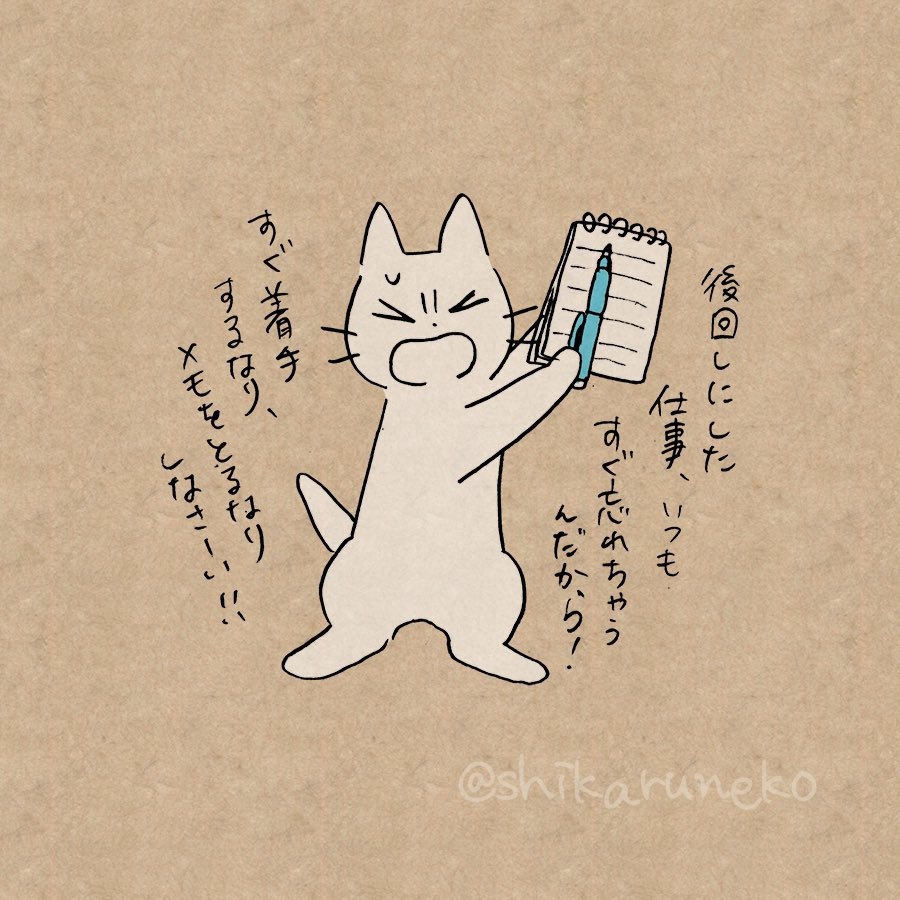 後回しにした
仕事、いつも
すぐ忘れちゃう
んだから!
すぐ着手
するなり、
メモをとるなり
しなさーい!!
@shikaruneko